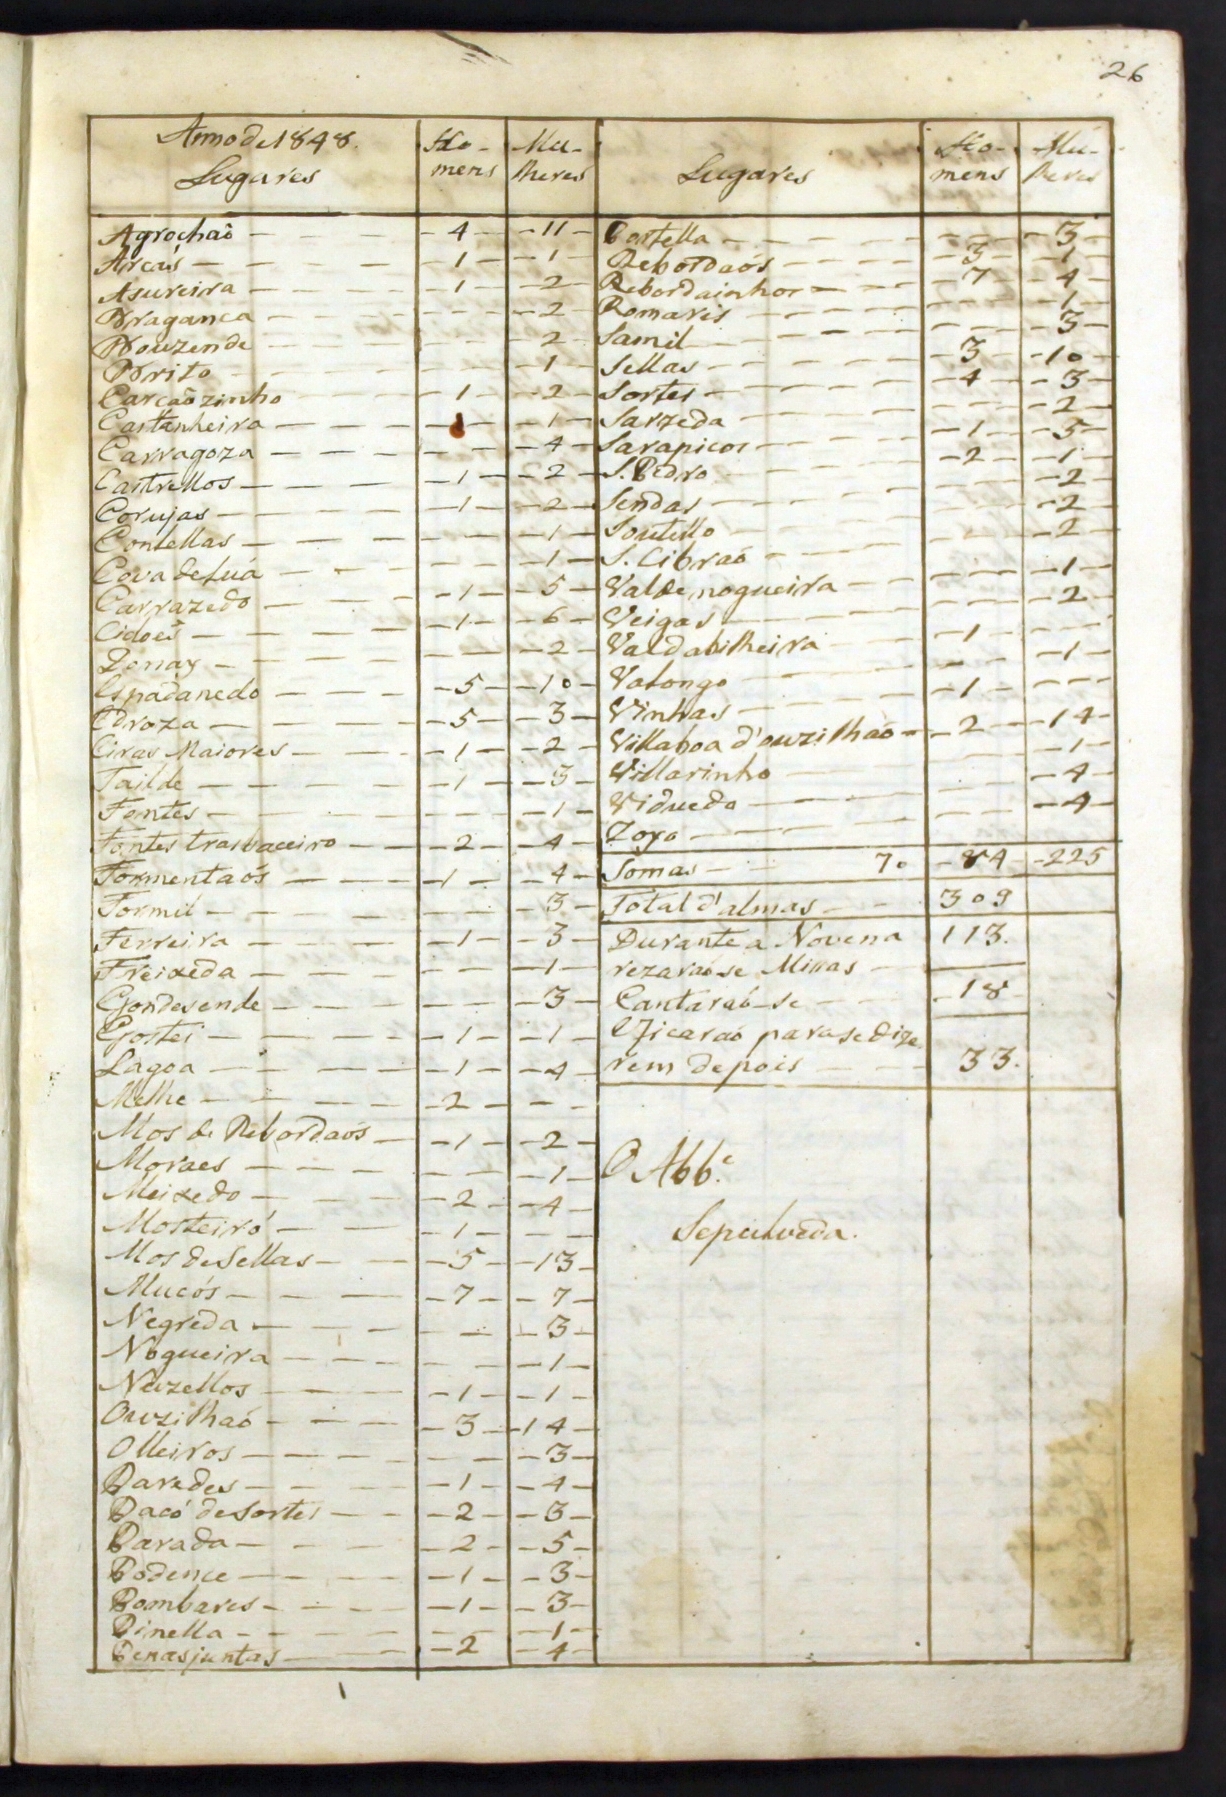 26
Anno de 1848.
Lugares Homens Mulheres
Agrochaõ - 4 - 11
Arcas - 1 - 1
Asureira - 1 - 2
Bragança - - 2
Bouzende - - 2
Brito - - 1
Carcaõzinho - 1 - 2
Castanheira - 1 - 1
Carragoza - - 4
Castrellos - 1 - 2
Corujas - 1 - 2
Conlellas - - 1
Cova de Lua - - 1
Carrazedo - 1 - 5
Cidoes - 1 - 6
Donay - - 2
Espadanedo - 5 - 10
Edroza - 5 - 3
Eiras Maiores - 1 - 2
Failde - 1 - 3
Fontes - - 1
Fontes trasbaceiro - 2 - 4
Formentaós - 1 - 4
Formil - - 3
Ferreira - 1 - 3
Freixeda - - 1
Gondesende - - 3
Gostei - 1 - 1
Lagoa - 1 - 4
Melhe - 2 - -
Mos de Rebordaós - 1 - 2
Moraes - - 1
Meixedo - 2 - 4
Mosteiró - 1 - -
Mos de Sellas - 5 - 13
Mucós - 7 - 7
Negreda - - 3
Nogueira - - 1
Nuzellos - 1 - 1
Ouzilhaó - 3 - 14
Olleiros - - 3
Paredes - 1 - 4
Pacó de Sortes - 2 - 3
Parada - 2 - 5
Podence - 1 - 3
Pombares - 1 - 3
Pinella - - 1
Penasjuntas - 2 - 4
Lugares Homens Mulheres
Portella - - 3
Rebordaós - 3 - 1
Rebordainhos - 7 - 4
Romaris - - 1
Samil - - 3
Sellas - 3 - 10
Sortes - 4 - 3
Sarzeda - - 2
Sarapicos - 1 - 5
S. Pedro - 2 - 1
Sendas - - 2
Soutello - - 2
S. Cibraó - - 2
Valdenogueira - - 1
Veigas - - 2
Valdabilheira - 1 -
Valongo - - 1
Vinhas - 1 - -
Villaboa d'ouzilhaó - 2 - 14
Villarinho - - 1
Viduedo - - 4
Zoyo - - 4
Somas 70 - 84 - 225
Total d'almas 309
Durante a Novena 113.
rezaraóse Missas
Cantaraó-se 18
Ficaraó para se dize
rem depois 33.
O Abb.e
Sepulveda.